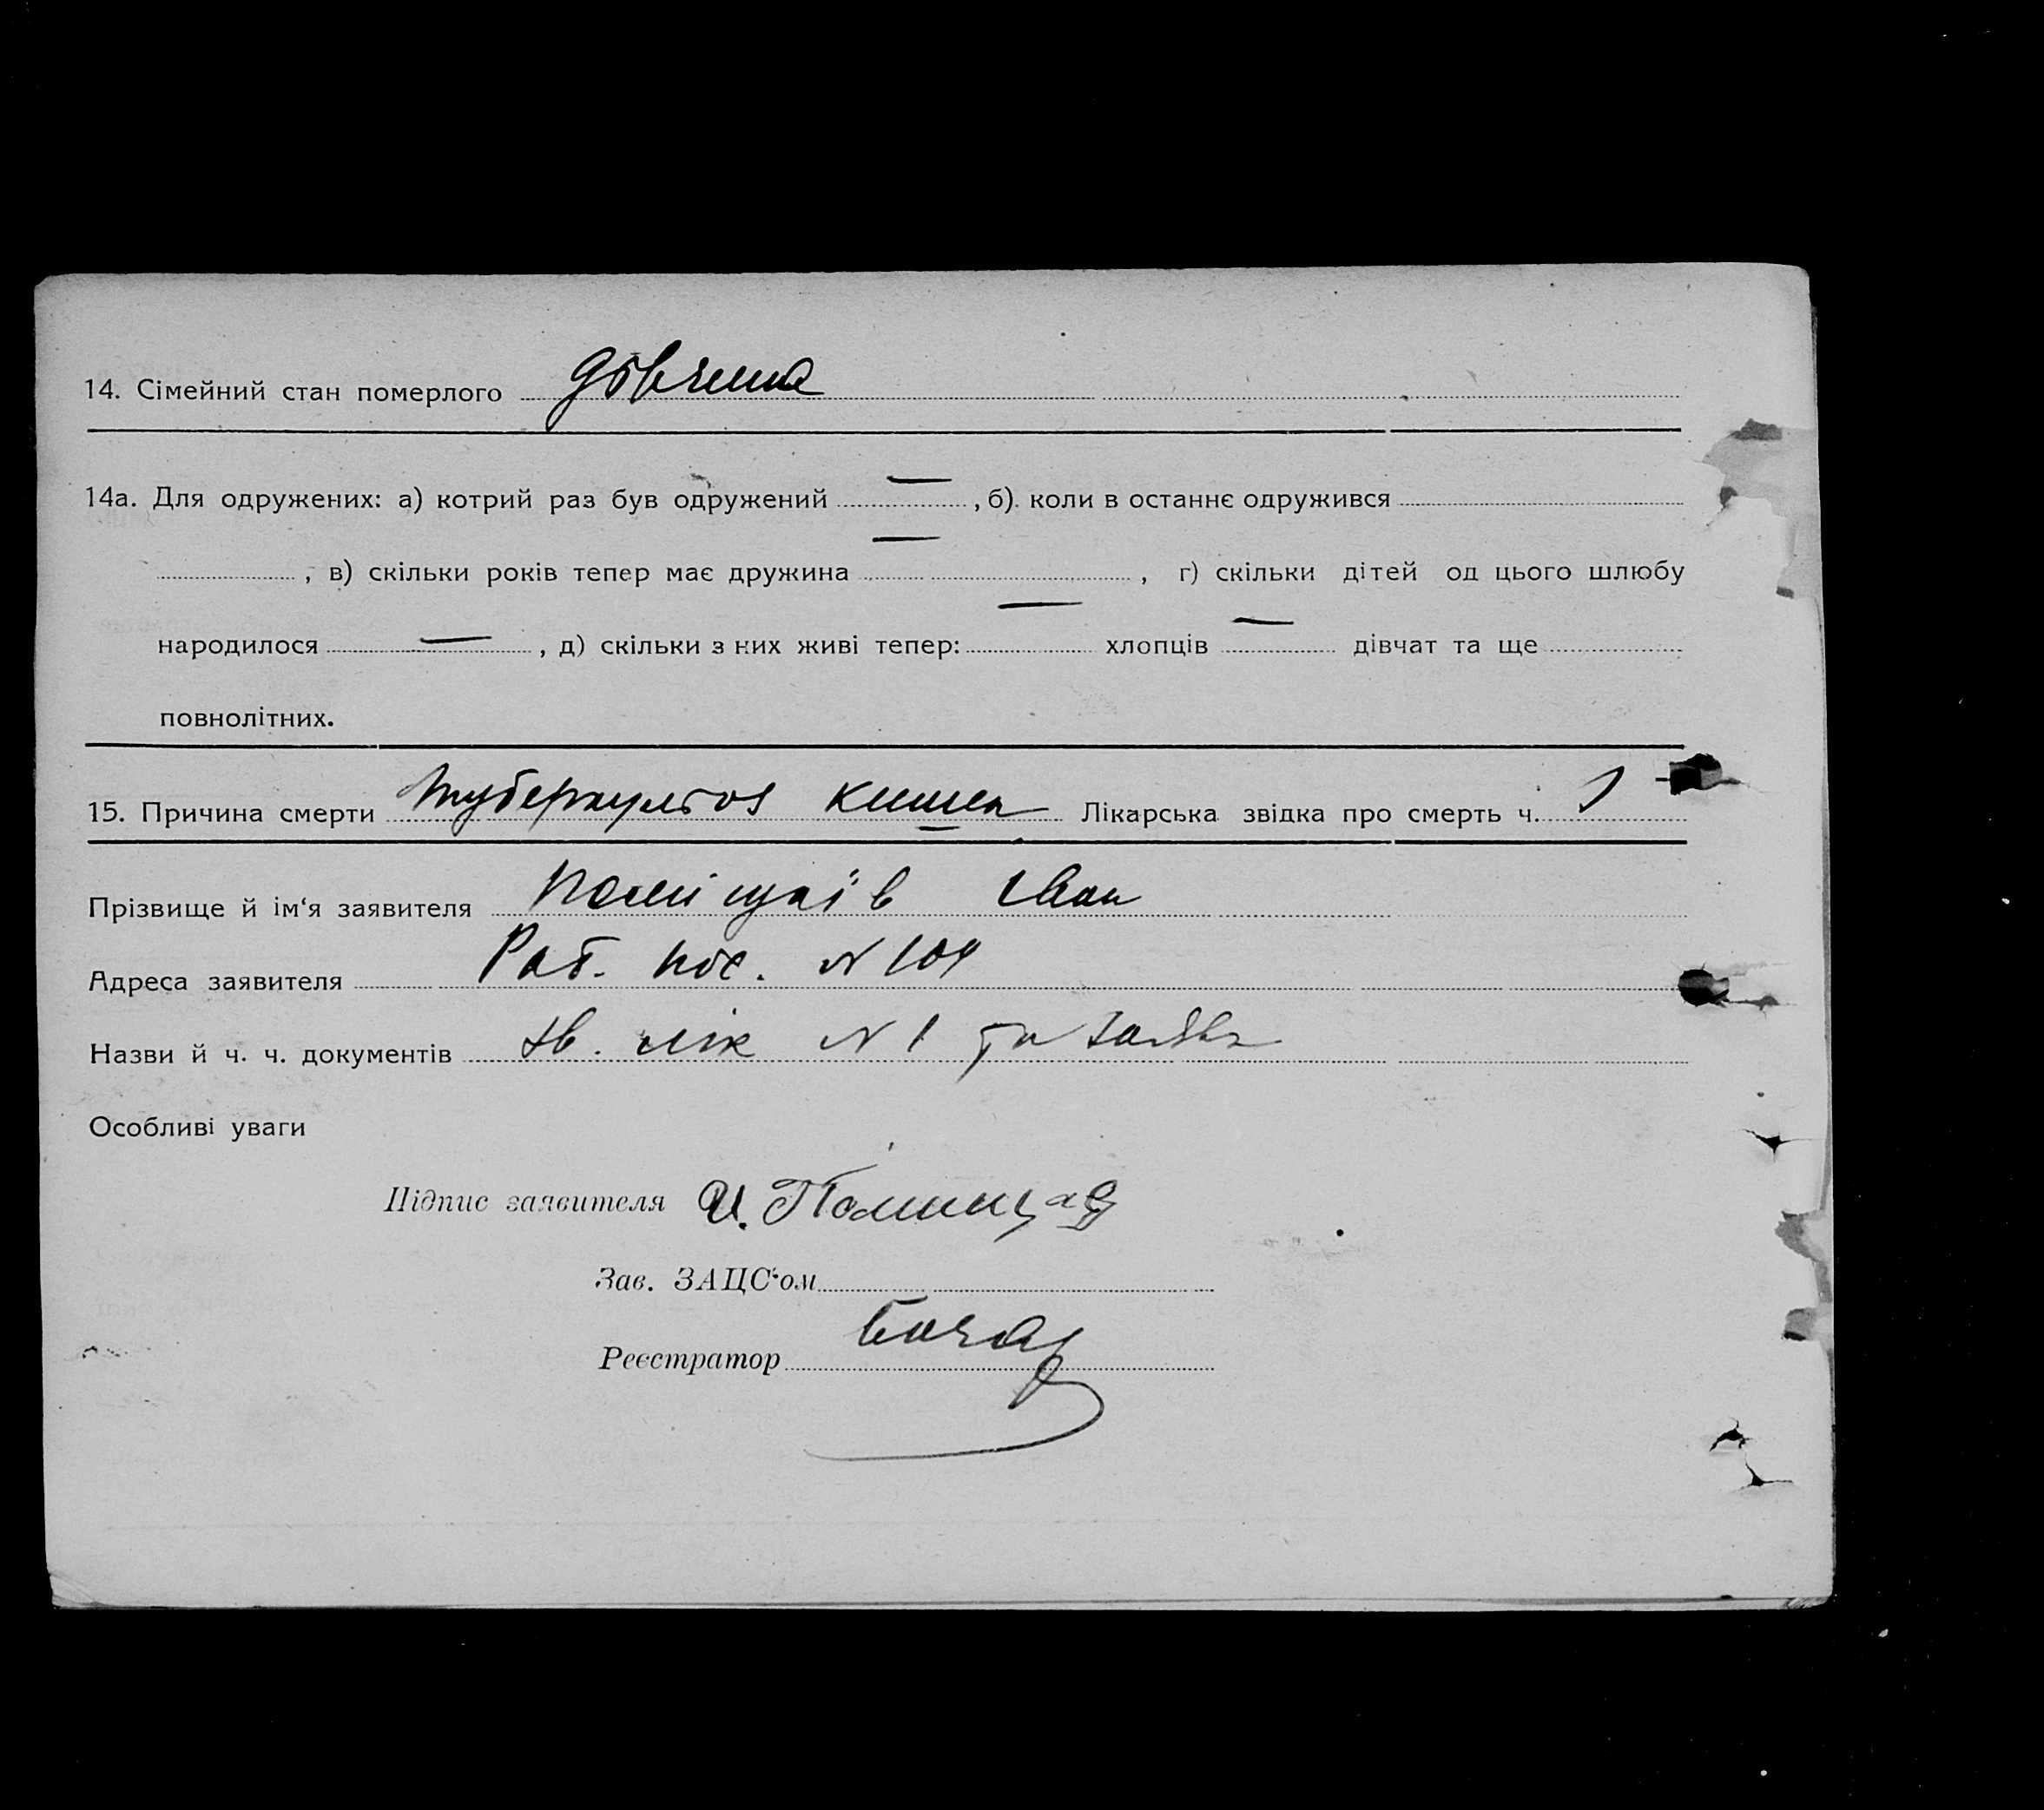 14. Сімейний стан померлого дівчина
14а. Для одружених: а) котрий раз був одружений — , б). коли в останнє одружився
, в) скільки років тепер має дружина — , г) скільки дітей од цього шлюбу
народилося — , д) скільки з них живі тепер: — хлопців — дівчат та ще
повнолітних.
15. Причина смерти туберкульоз кишек Лікарська звідка про смерть ч. 1
Прізвище й ім‘я заявителя Поміщаїв Іван
Адреса заявителя Раб. пос. N 104
Назви й ч. ч. документів зв. лік N 1 та заява
Особливі уваги
Підпис заявителя И.
Зав. ЗАЦС‘ом
Реєстратор Бочар